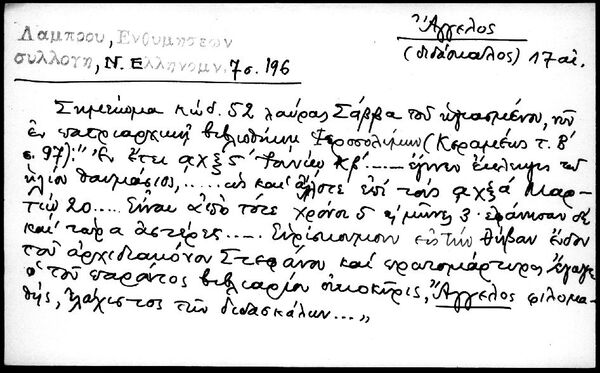 Λαμπρου, Ενθυμησεων
συλλογη, Ν. Ελληνομν. 7 σ. 196
Ἄγγελος
(διδάσκαλος) 17 αἰ.
Σημείωμα κώδ. 52 λαύρας Σάββα τοῦ ἡγιασμένου, νῦν
ἐν πατριαρχικῇ βιβλιοθήκῃ Ἱεροσολύμων (Κεραμέως τ. Β΄
σ. 97): "Ἐν ἔτει ͵αχξϛ΄ Ἰουνίου κβ΄ ..... ἔγινεν ἔκλειψις τοῦ
ἡλίου θαυμάσιος, ..... ὡς καὶ ἄλλοτε ἐπὶ τοὺς ͵αχξα΄ Μαρ-
τίῳ 20..... Εἶναι ἀπὸ τότε χρόνοι 5 μῆνες 3· ἐφάνησαν δὲ
καὶ τάρα ἀστέρες ..... Εὑρισκόμουν εἰς τὴν Θήβαν ἔσον
τοῦ ἀρχιδιακόνου Στεφάνου καὶ πρωτομάρτυρος ἐγὼ
ὁ τοῦ παρόντος βιβλιαρίου οἰκοκύρις, Ἄγγελος φιλομα-
θής, ἐλάχιστος τῶν διδασκάλων ... "